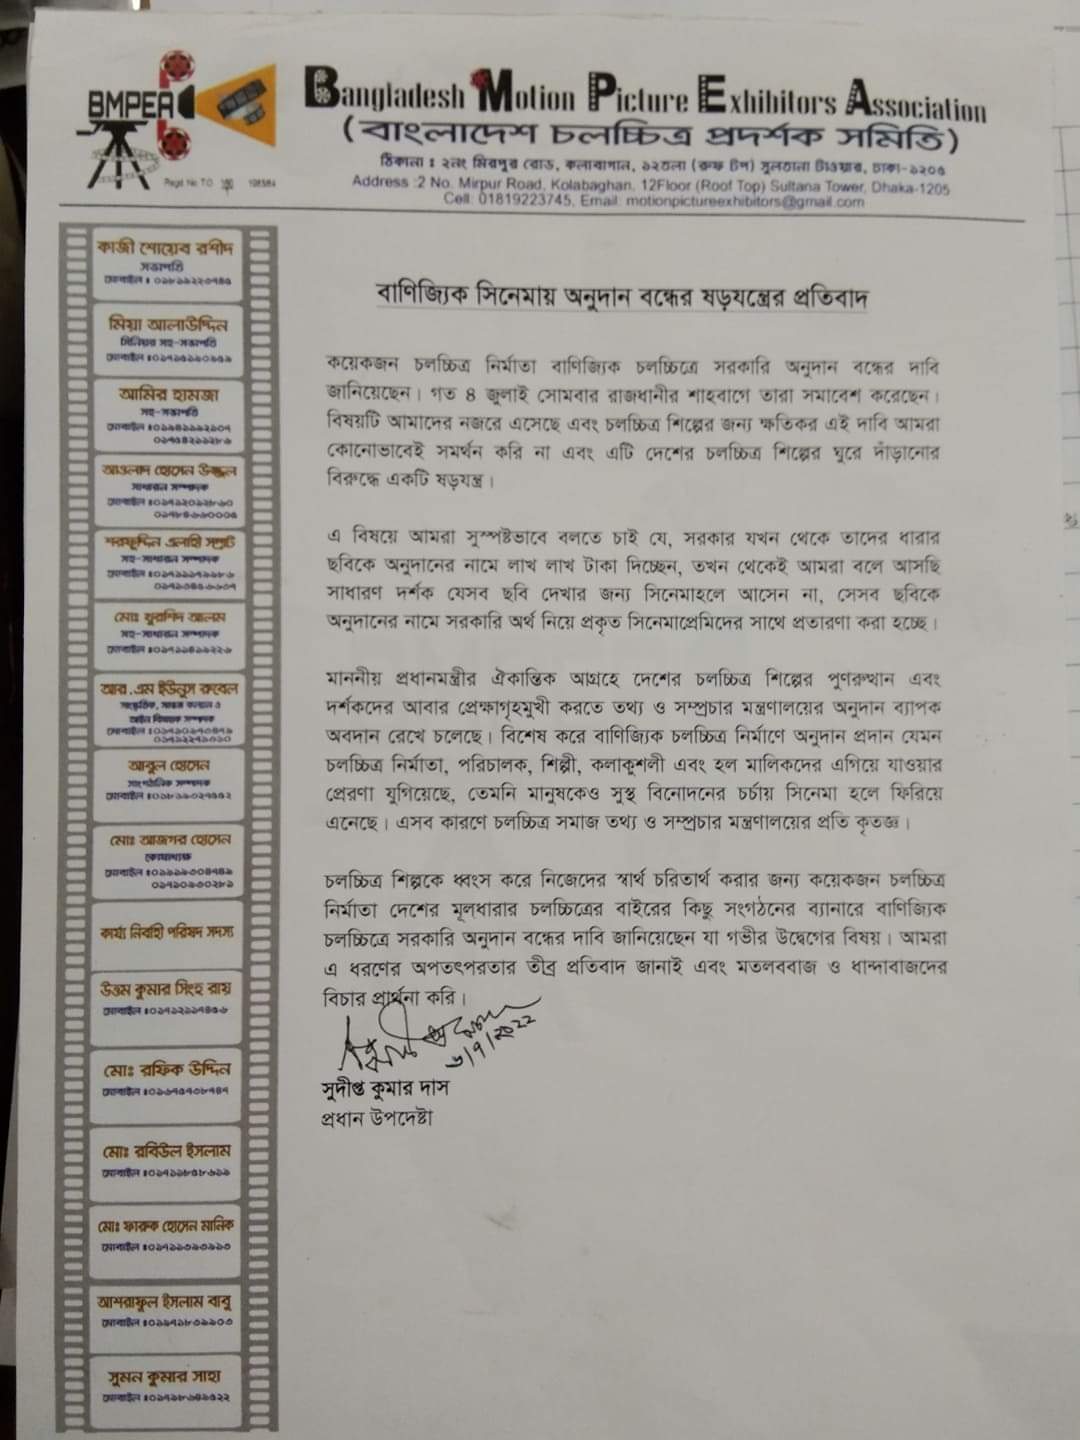 BMPEA
Bangladesh Motion Picture Exhibitors Association
(বাংলাদেশ চলচ্চিত্র প্রদর্শক সমিতি)
ঠিকানা : ২নং মিরপুর রোড, কলাবাগান, ১২তলা (রুফ টপ) সুলতানা টাওয়ার, ঢাকা-১২০৫
Address :2 No. Mirpur Road, Kolabaghan, 12Floor (Roof Top) Sultana Tower, Dhaka-1205
Cell: 01819223745, Email: motionpictureexhibitors@gmail.com
কাজী শোয়েব রশীদ
সভাপতি
মিয়া আলাউদ্দিন
সিনিয়র সহ-সভাপতি
আমির হামজা
সহ-সভাপতি
আওলাদ হোসেন উজ্জ্বল
সাধারন সম্পাদক
শরফুদ্দিন এলাহী সম্রাট
সহ-সাধারন সম্পাদক
মোঃ খুরশিদ আলম
সহ-সাধারন সম্পাদক
আর.এম ইউনুস রুবেল
আবুল হোসেন
সাংগঠনিক সম্পাদক
মোঃ আজগর হোসেন
কোষাধ্যক্ষ
কার্য্য নির্বাহী পরিষদ সদস্য
উত্তম কুমার সিংহ রায়
মোঃ রফিক উদ্দিন
মোঃ রবিউল ইসলাম
মোঃ ফারুক হোসেন মানিক
আশরাফুল ইসলাম বাবু
সুমন কুমার সাহা
বাণিজ্যিক সিনেমায় অনুদান বন্ধের ষড়যন্ত্রের প্রতিবাদ
কয়েকজন চলচ্চিত্র নির্মাতা বাণিজ্যিক চলচ্চিত্রে সরকারি অনুদান বন্ধের দাবি
জানিয়েছেন। গত ৪ জুলাই সোমবার রাজধানীর শাহবাগে তারা সমাবেশ করেছেন।
বিষয়টি আমাদের নজরে এসেছে এবং চলচ্চিত্র শিল্পের জন্য ক্ষতিকর এই দাবি আমরা
কোনোভাবেই সমর্থন করি না এবং এটি দেশের চলচ্চিত্র শিল্পের ঘুরে দাঁড়ানোর
বিরুদ্ধে একটি ষড়যন্ত্র।
এ বিষয়ে আমরা সুস্পষ্টভাবে বলতে চাই যে, সরকার যখন থেকে তাদের ধারার
ছবিকে অনুদানের নামে লাখ লাখ টাকা দিচ্ছেন, তখন থেকেই আমরা বলে আসছি
সাধারণ দর্শক যেসব ছবি দেখার জন্য সিনেমাহলে আসেন না, সেসব ছবিকে
অনুদানের নামে সরকারি অর্থ নিয়ে প্রকৃত সিনেমাপ্রেমিদের সাথে প্রতারণা করা হচ্ছে।
মাননীয় প্রধানমন্ত্রীর ঐকান্তিক আগ্রহে দেশের চলচ্চিত্র শিল্পের পুণরুত্থান এবং
দর্শকদের আবার প্রেক্ষাগৃহমুখী করতে তথ্য ও সম্প্রচার মন্ত্রণালয়ের অনুদান ব্যাপক
অবদান রেখে চলেছে। বিশেষ করে বাণিজ্যিক চলচ্চিত্র নির্মাণে অনুদান প্রদান যেমন
চলচ্চিত্র নির্মাতা, পরিচালক, শিল্পী, কলাকুশলী এবং হল মালিকদের এগিয়ে যাওয়ার
প্রেরণা যুগিয়েছে, তেমনি মানুষকেও সুস্থ বিনোদনের চর্চায় সিনেমা হলে ফিরিয়ে
এনেছে। এসব কারণে চলচ্চিত্র সমাজ তথ্য ও সম্প্রচার মন্ত্রণালয়ের প্রতি কৃতজ্ঞ।
চলচ্চিত্র শিল্পকে ধ্বংস করে নিজেদের স্বার্থ চরিতার্থ করার জন্য কয়েকজন চলচ্চিত্র
নির্মাতা দেশের মূলধারার চলচ্চিত্রের বাইরের কিছু সংগঠনের ব্যানারে বাণিজ্যিক
চলচ্চিত্রে সরকারি অনুদান বন্ধের দাবি জানিয়েছেন যা গভীর উদ্বেগের বিষয়। আমরা
এ ধরণের অপতৎপরতার তীব্র প্রতিবাদ জানাই এবং মতলববাজ ও ধান্দাবাজদের
বিচার প্রার্থনা করি।
৬/৭/২০২২
সুদীপ্ত কুমার দাস
প্রধান উপদেষ্টা